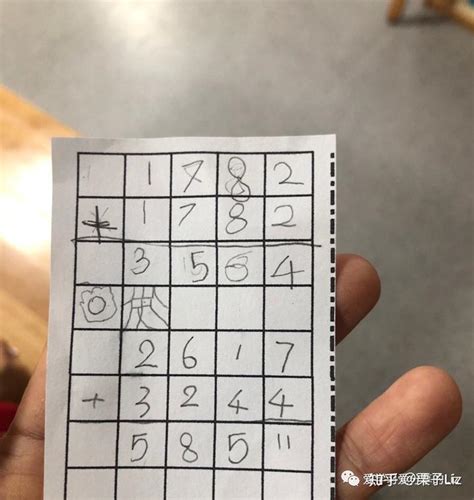 1 7 8 2
+ 1 7 8 2
3 5 6 4
2 6 1 7
+ 3 2 4 4
5 8 5 11
知乎 @栗子Liz